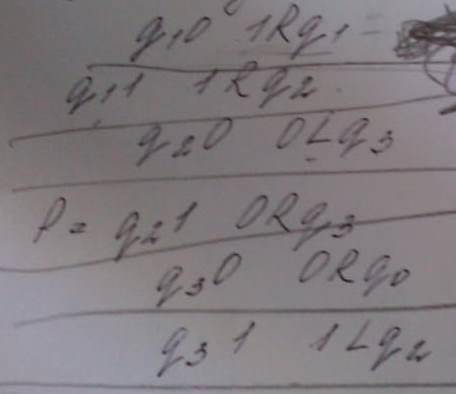 q₁0 1Rq₁ =
q₁1 1Rq₂.
q₂0 0Lq₃
P = q₂1 0Rq₃
q₃0 0Rq₀
q₃1 1Lq₂